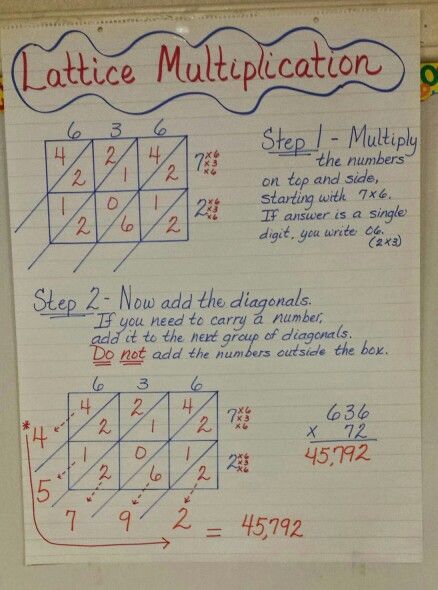 Lattice Multiplication
6 3 6
4 2 4
2 1 2
7 x6 x3 x6
1 0 1
2 6 2
2 x6 x3 x6
Step 1 - Multiply
the numbers
on top and side,
starting with 7x6.
If answer is a single
digit, you write 06.
(2x3)
Step 2 - Now add the diagonals.
If you need to carry a number,
add it to the next group of diagonals.
Do not add the numbers outside the box.
6 3 6
4 2 4
2 1 2
7 x6 x3 x6
1 0 1
2 6 2
2 x6 x3 x6
* 4
5
7 9 2 = 45,792
636
x 72
45,792